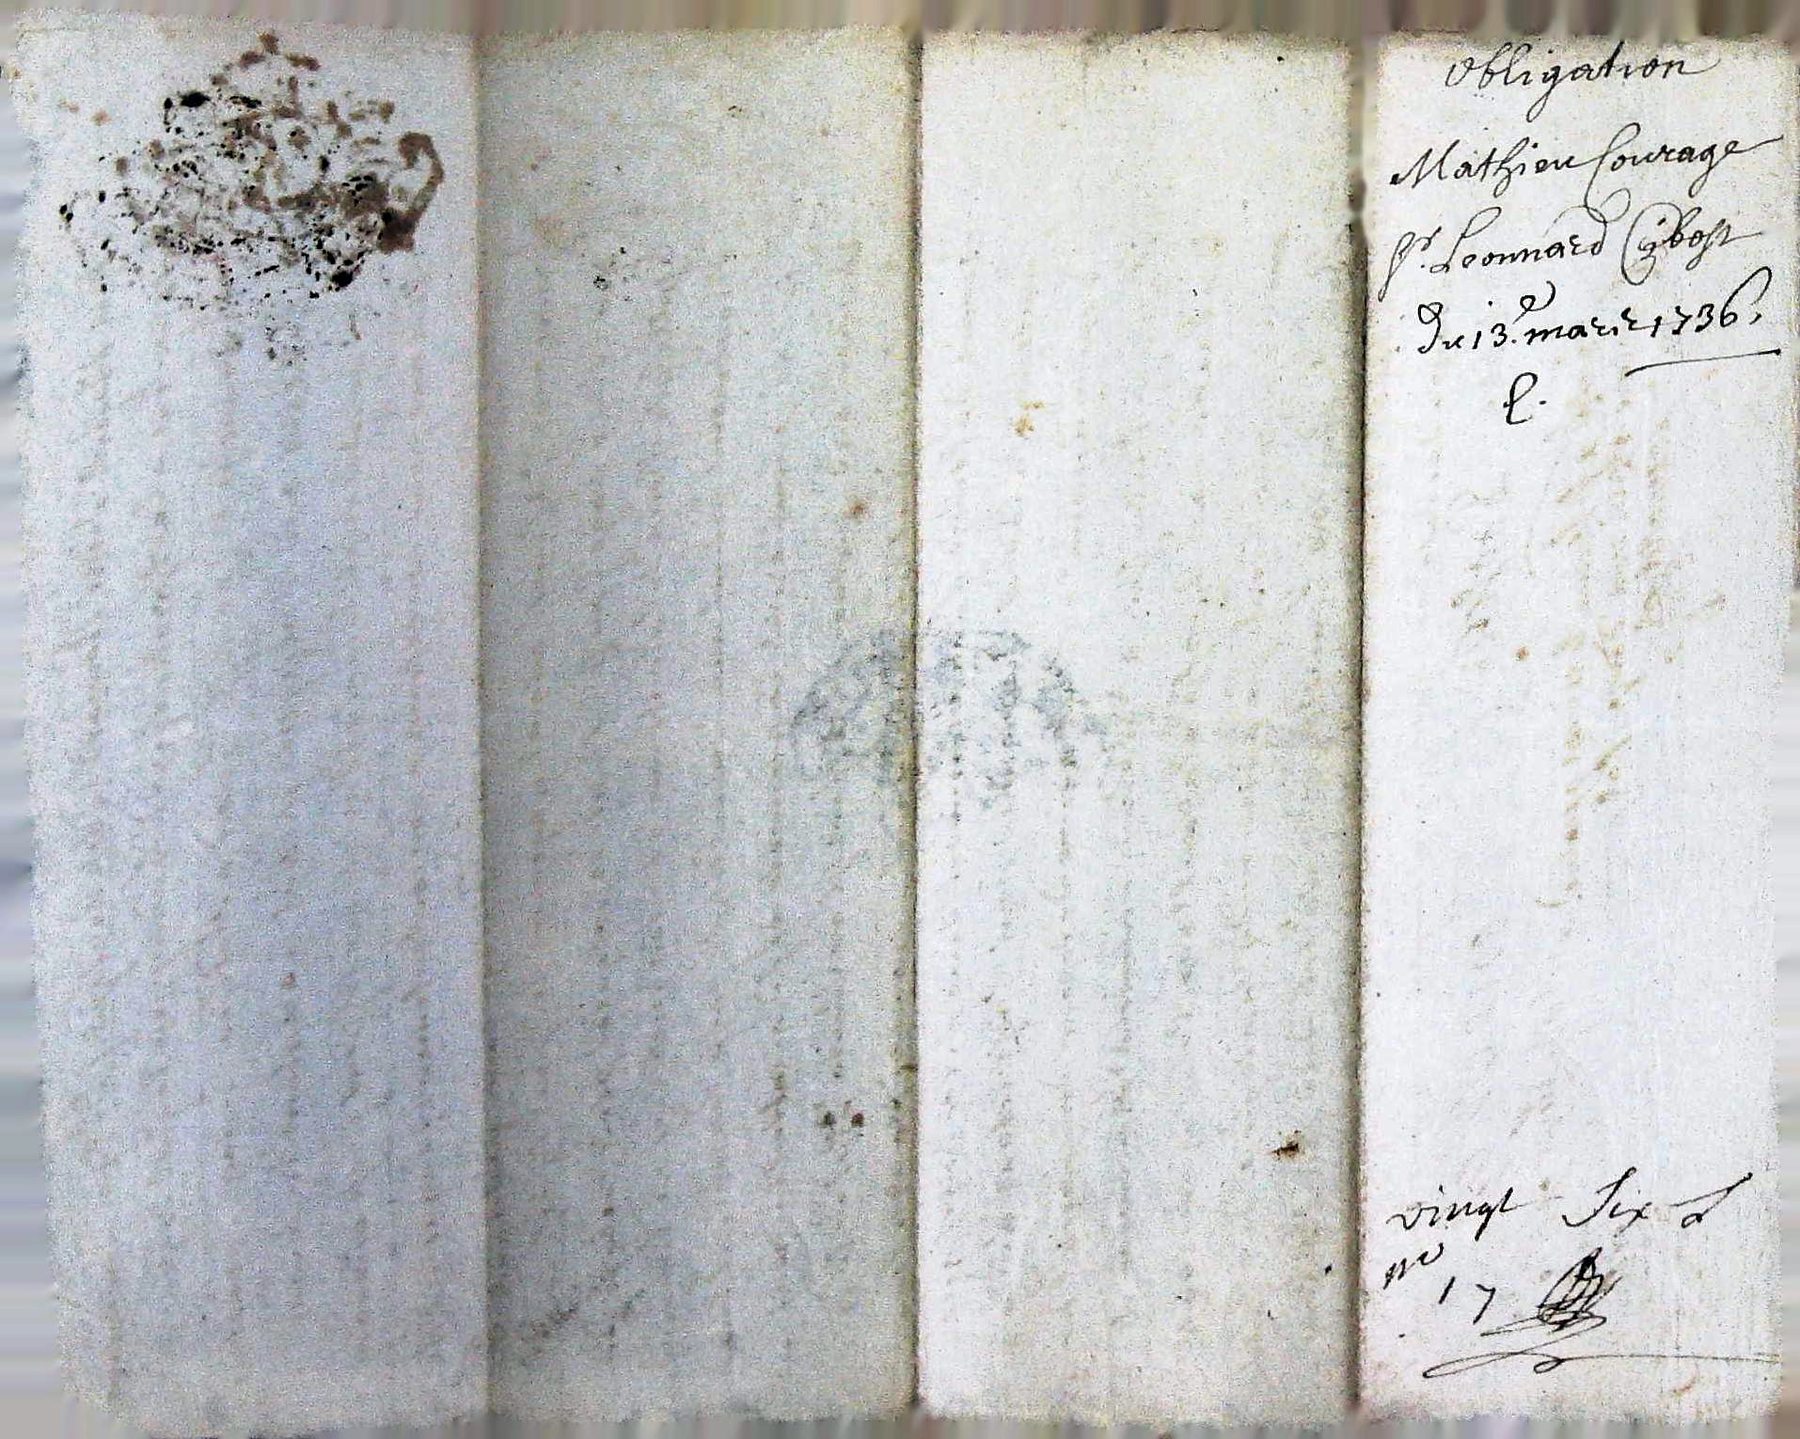 Obligation
Mathieu Courage
pr. Leonnard Cybost
Du 13e. mars 1736.
vingt Six
no
17